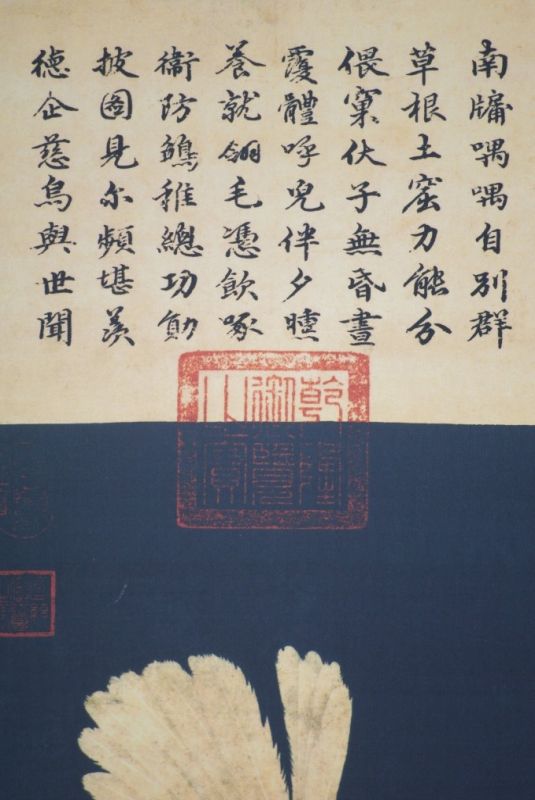 南牖喁喁自別群
草根土窟力能分
偎窠伏子無昏晝
覆體呼兒伴夕曛
養就翎毛憑飲啄
衞防鶵稚總功勛
披圖見尔頻堪羨
德企慈烏與世聞
乾隆御覽之寶